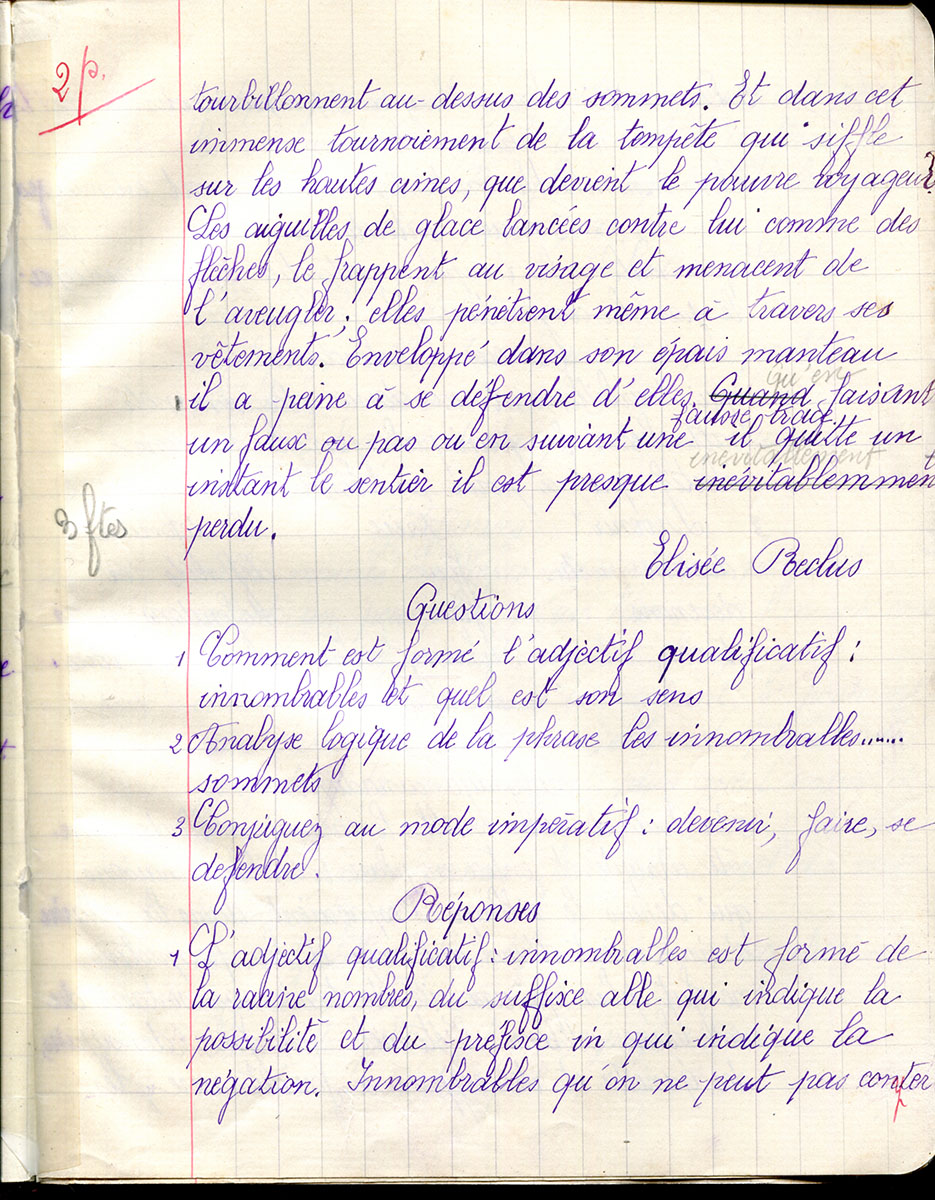 2 p.
tourbillonnent au-dessus des sommets. Et dans cet
immense tournoiement de la tempête qui siffle
sur les hautes cimes, que devient le pauvre voyageur?
Les aiguilles de glace lancées contre lui comme des
flèches, le frappent au visage et menacent de
l'aveugler; elles pénètrent même à travers ses
vêtements. Enveloppé dans son épais manteau
qu'en
il a peine à se défendre d'elles. Quand faisant
fausse trace
un faux ou pas ou en suivant une il quitte un
inévitablement
instant le sentier il est presque inévitablemment
3 ftes
perdu.
Elisée Reclus
Questions
1 Comment est formé l'adjectif qualificatif :
innombrables et quel est son sens
2 Analyse logique de la phrase les innombrables......
sommets
3 Conjuguez au mode impératif : devenir, faire, se
défendre.
Réponses
1 L'adjectif qualificatif : innombrables est formé de
la racine nombres, du suffixe able qui indique la
possibilité et du préfixe in qui indique la
négation. Innombrables qu'on ne peut pas conter